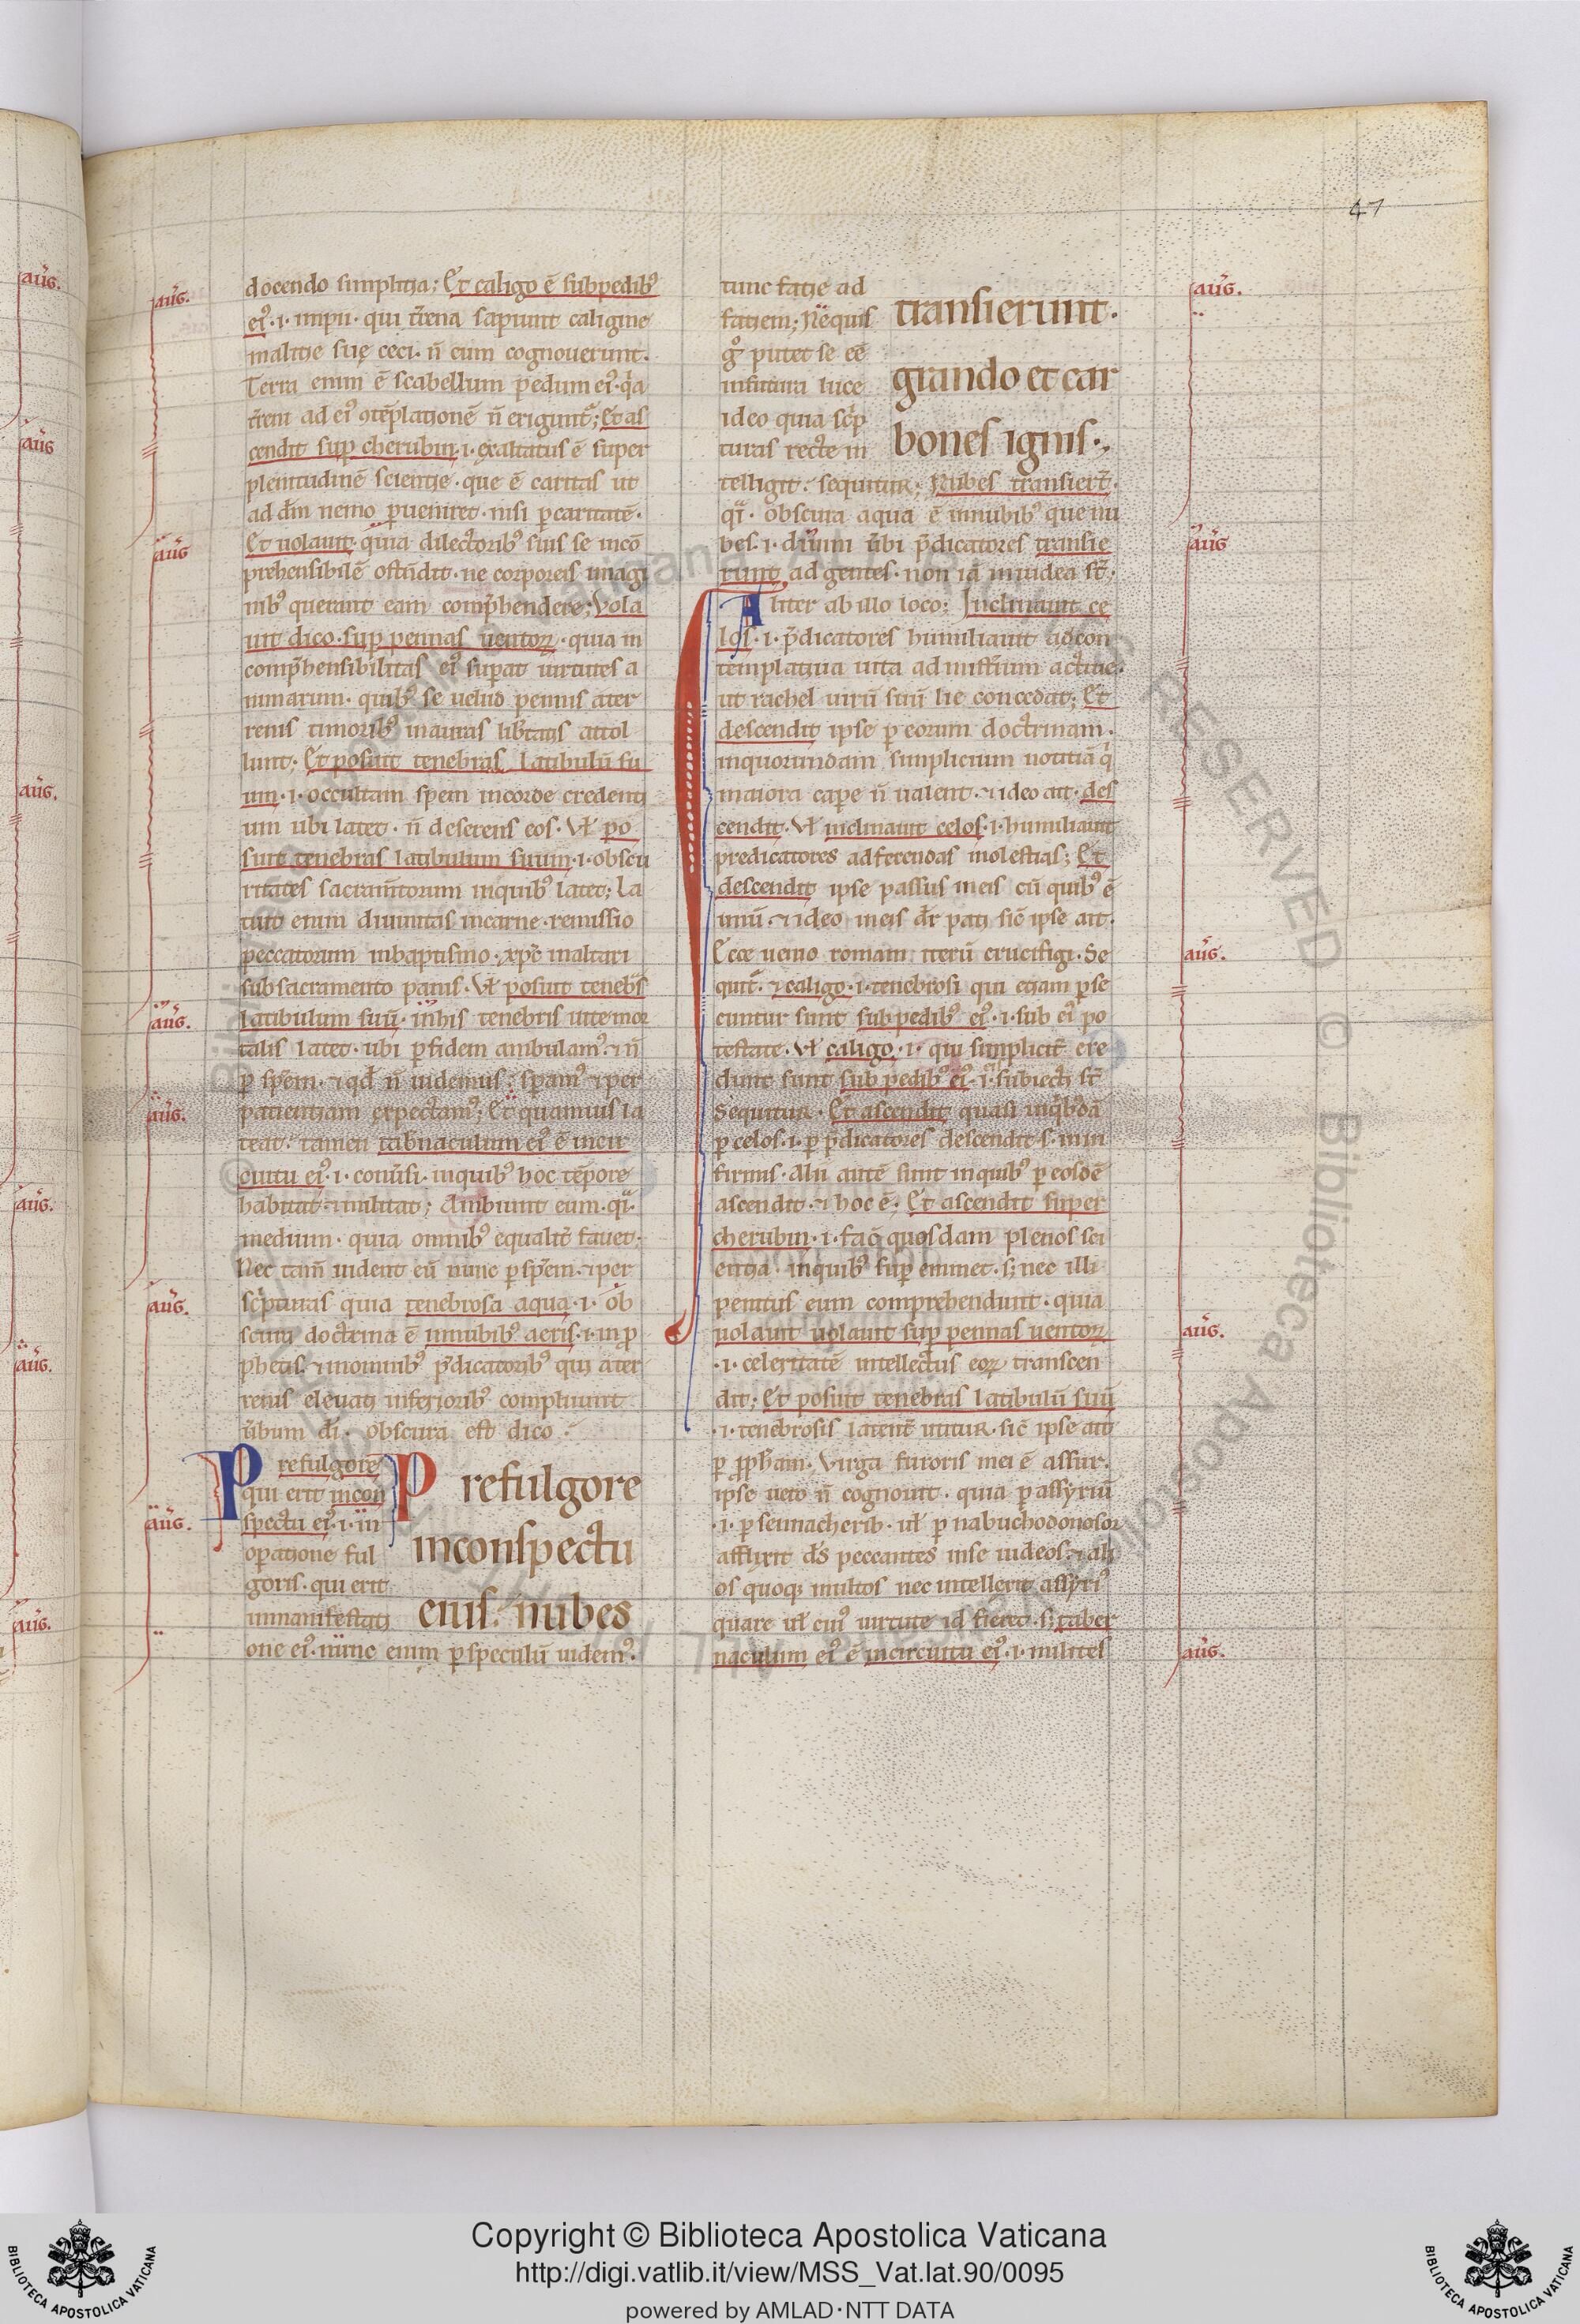 47
docendo simplicia; Et caligo ē sub pedibꝰ
eiꝰ·i· impii· qui t̄rena sapiunt caligine
malitie suę ceci· n̄ eum cognouerunt.
Terra enim ē scabellum pedum eiꝰ· q̇a
t̄reni ad eiꝰ ꝯtēplationē n̄ erigunt᷑; Et as
cendit sup cherubin·i· exaltatus ē super
plenitudinē scientię· que ē caritas ut
ad dm̄ nemo ꝑueniret· nisi ꝑ caritatē·
Et uolauit quia dilectoribꝰ suis se incō
prehensibilē ostn̄dit· ne corporeis imagi
nibꝰ querant eum comp̄hendere; Vola
uit dico· suꝑ pennas uentoꝝ· quia in
comp̄hensibilitas eiꝰ suꝑat uirtutes a
nimarum· quibꝰ se uelud pennis a ter
renis timoribꝰ in auras lib̄tatis attol
lunt; Et posuit tenebras latibulū su
um·i· occultam spem in corde credenti
um ubi latet· n̄ deserens eos· Vł po
suit tenebras latibulum suum·i· obscu
ritates sacram̄torum in quibꝰ latet; La
tuit enim diuinitas in carne· remissio
peccatorum in baptismo· xp̄c in altari
sub sacramento panis· Vł posuit tenebꝰs
latibulum suū· in his tenebris uite mor
talis latet· ubi ꝑ fidem ambulamꝰ· ⁊ n̄
ꝑ spēm· ⁊ qd̄ n̄ uidemus· sꝑamꝰ ⁊ per
patientiam expectamꝰ; Et quamuis la
teat· tamen tab̄naculum eiꝰ ē in cir
cuitu eiꝰ·i· conūsi· in quibꝰ hoc tēpore
habitat ⁊ militat; Ambiunt eum· qͣi·
medium· quia omnibꝰ equalit̄ fauet·
Nec tam̄ uident eū nunc ꝑ spēm· ⁊ per
sc̄pturas quia tenebrosa aqua·i· ob
scura doctrina ē in nubibꝰ aeris·i· in ꝓ
phetis· ⁊ in omnibꝰ p̄dicatoribꝰ qui a ter
renis eleuati inferioribꝰ compluunt
ūbum dī· obscura est dico·
Pre fulgore
qui erit in con
spectu eiꝰ·i· in
oꝑatione ful
goris· qui erit
in manifestati
one eiꝰ· nunc enim ꝑ speculū uidemꝰ·
Pre fulgore
in conspectu
eius· nubes
tunc facie ad
faciem; Ne quis
gͦ putet se eē
in futura luce
ideo quia sc̄p
turas recte in
telligit· sequitur; Nubes transier̄t·
qͣi· obscura aqua ē in nubibꝰ que nu
bes·i· diuini ūbi p̄dicatores transie
runt ad gentes· non iā in iudea st̄·
Aliter ab illo loco; Inclinauit ce
los·i· p̄dicatores humiliauit ad con
templatiua uita ad ministrium actiue·
ut rachel uirū suū lie concedat; Et
descendit ipse ꝑ eorum doctrinam·
in quorundam simplicium notitiā q̇
maiora capere n̄ ualent· ⁊ ideo ait· des
cendit· Vł inclinauit celos·i· humiliauit
predicatores ad ferendas molestias; Et
descendit ipse passus in eis cū quibꝰ ē
unū· ⁊ ideo in eis dr̄ pati sic̄ ipse ait·
Ecce uenio romam iterū crucifigi· Se
quit᷑· ⁊ caligo·i· tenebrosi qui etiam ꝑse
cuntur sunt sub pedibꝰ eiꝰ·i· sub eiꝰ po
testate· Vł caligo·i· qui simplicit̄ cre
dunt sunt sub pedibꝰ eiꝰ·i· subiecti st̄·
Sequitur· Et ascendit quasi in q̇bꝰdā
ꝑ celos·i· ꝑ p̄dicatores descendit s· in in
firmis· Alii autē sunt in quibꝰ ꝑ eosdē
ascendit· ⁊ hoc ē; Et ascendit super
cherubin·i· fac̄ quosdam plenos sci
entia· in quibꝰ suꝑ eminet· s; nec illi
penitus eum comprehendunt· quia
uolauit uolauit suꝑ pennas uentoꝝ
·i· celeritatē intellectus eoꝝ transcen
dit; Et posuit tenebras latibulū suū
·i· tenebrosis latent̄ utitur· sic̄ ipse ait
ꝑ ꝓph̄am· Virga furoris mei ē assur·
ipse uero n̄ cognouit· quia ꝑ assyriū
·i· ꝑ sennacherib· uł ꝑ nabuchodonosor
afflixit dꝰs peccantes in se iudeos· ⁊ ali
os quoqꝫ multos nec intellexit assyriꝰ
quare uł cuiꝰ uirtute id fieret· s; taber
naculum eiꝰ ē in circuitu eiꝰ·i· milites
transierunt·
grando et car
bones ignis·
aūg.
aūg
aūg.
aūg.
aūg.
aūg.
aūg.
aūg
aūg.
aūg.
aūg.
aūg.
aūg
aūg.
aūg.
aūg.
aūg.
Copyright © Biblioteca Apostolica Vaticana
http://digi.vatlib.it/view/MSS_Vat.lat.90/0095
powered by AMLAD·NTT DATA
BIBLIOTECA APOSTOLICA VATICANA
BIBLIOTECA APOSTOLICA VATICANA